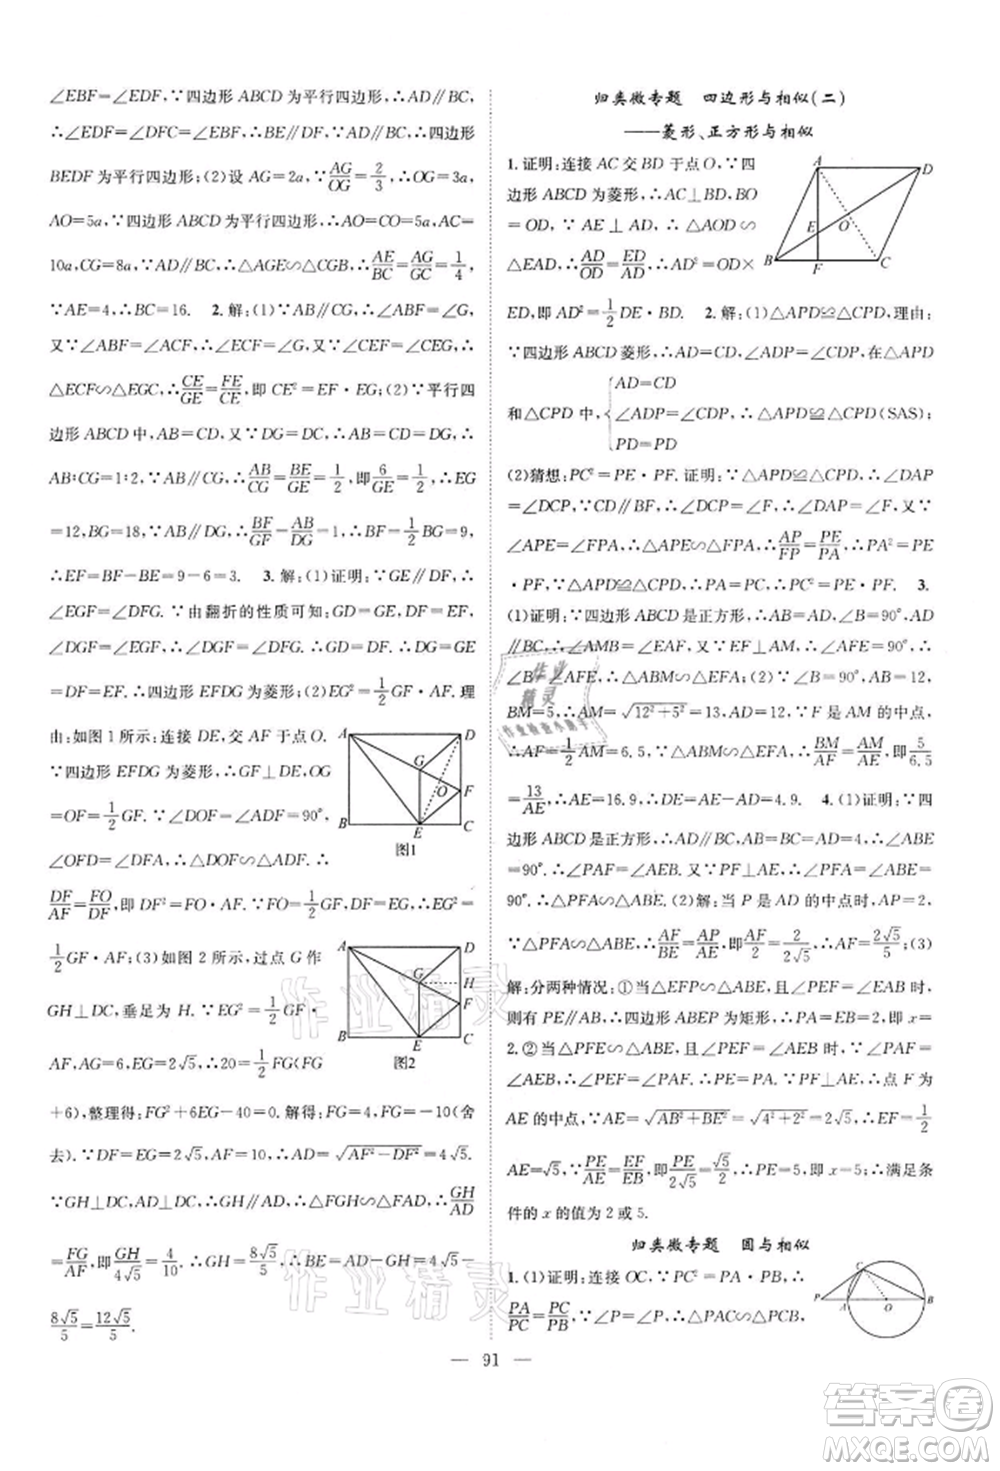 ∠EBF=∠EDF,∵四边形 ABCD 为平行四边形,∴AD∥BC,
∴∠EDF=∠DFC=∠EBF,∴BE∥DF,又DE∥BF,∴四边形
BEDF 为平行四边形;(2)设 AG=2a,∵AG/OG=2/3,∴OG=3a,
AO=5a,∵四边形 ABCD 为平行四边形,∴AO=CO=5a,AC=
10a,CG=8a,∵AD∥BC,∴△AGE∽△CGB,∴AE/BC=AG/GC=1/4,
∵AE=4,∴BC=16. 2.解:(1)∵AB∥CG,∴∠ABF=∠G,
又∵∠ABF=∠ACF,∴∠ECF=∠G,又∵∠CEF=∠CEG,∴
△ECF∽△GEC,∴CE/GE=FE/CE,即 CE²=EF·EG;(2)∵平行四
边形 ABCD 中,AB=CD,又∵DG=DC,∴AB=CD=DG,∴
AB:CG=1:2,∵AB∥CG,∴AB/CG=BE/GE=1/2,即6/GE=1/2,∴EG
=12,BG=18,∵AB∥DG,∴BF/GF=AB/DG=1,∴BF=1/2BG=9,
∴EF=BF-BE=9-6=3. 3.解:(1)证明:∵GE∥DF,∴
∠EGF=∠DFG. ∵由翻折的性质可知:GD=GE,DF=EF,
∠DGF=∠EGF,∴∠DGF=∠DFG. ∴GD=DF. ∴DG=GE
=DF=EF. ∴四边形 EFDG 为菱形;(2)EG²=1/2GF·AF. 理
由:如图1所示:连接 DE,交 AF 于点 O.
∵四边形 EFDG 为菱形,∴GF⊥DE,OG
=OF=1/2GF. ∵∠DOF=∠ADF=90°,
∠OFD=∠DFA,∴△DOF∽△ADF. ∴
DF/AF=FO/DF,即 DF²=FO·AF,∴EG²=
1/2GF·AF;(3)如图 2 所示,过点 G 作
GH⊥DC,垂足为 H. ∵EG²=1/2GF·
AF,AG=6,EG=2√5,∴20=1/2FG(FG
+6),整理得:FG²+6FG-40=0. 解得:FG=4,FG=-10(舍
去).∵DF=GE=2√5,AF=10,∴AD=√AF²-DF²=4√5.
∵GH⊥DC,AD⊥DC,∴GH∥AD,∴△FGH∽△FAD,∴GH/AD
=FG/AF,即GH/4√5=4/10,∴GH=8√5/5,∴BE=AD-GH=4√5-
8√5/5=12√5/5.
A D G O F B E C
图1
A D G H F B E C
图2
归类微专题 四边形与相似(二)
——菱形、正方形与相似
1.证明:连接 AC 交 BD 于点 O,∵四
边形 ABCD 为菱形,∴AC⊥BD,BO=
OD,∵AE⊥AD,∴△AOD∽
△EAD,∴AD/OD=ED/AD,∴AD²=OD×
ED,即 AD²=1/2DE·BD. 2.解:(1)△APD≌△CPD,理由:
∵四边形 ABCD 菱形,∴AD=CD,∠ADP=∠CDP,在△APD
和△CPD 中,{AD=CD ∠ADP=∠CDP,∴△APD≌△CPD(SAS); PD=PD
(2)猜想:PC²=PE·PF. 证明:∵△APD≌△CPD,∴∠DAP
=∠DCP,∵CD∥BF,∴∠DCP=∠F,∴∠DAP=∠F,又∵
∠APE=∠FPA,∴△APE∽△FPA,∴AP/FP=PE/PA,∴PA²=PE
·PF,∵△APD≌△CPD,∴PA=PC,∴PC²=PE·PF. 3.
(1)证明:∵四边形 ABCD 是正方形,∴AB=AD,∠B=90°,AD
∥BC,∴∠AMB=∠EAF,又∵EF⊥AM,∴∠AFE=90°,∴
∠B=∠AFE,∴△ABM∽△EFA;(2)∵∠B=90°,AB=12,
BM=5,∴AM=√12²+5²=13,AD=12,∵F 是 AM 的中点,
∴AF=1/2AM=6.5,∵△ABM∽△EFA,∴BM/AF=AM/AE,即5/6.5
=13/AE,∴AE=16.9,∴DE=AE-AD=4.9. 4.(1)证明:∵四
边形 ABCD 是正方形,∴AD∥BC,AB=BC=AD=4,∠ABE
=90°,∴∠PAF=∠AEB. 又∵PF⊥AE,∴∠PFA=∠ABE=
90°,∴△PFA∽△ABE.(2)解:当 P 是 AD 的中点时,AP=2,
∵△PFA∽△ABE,∴AF/BE=AP/AE,即AF/2=2/2√5,∴AF=2√5/5;(3)
解:分两种情况:①当△EFP∽△ABE,且∠PEF=∠EAB 时,
则有 PE∥AB,∴四边形 ABEP 为矩形,∴PA=EB=2,即 x=
2.②当△PFE∽△ABE,且∠PEF=∠AEB 时,∵∠PAF=
∠AEB,∴∠PEF=∠PAF,∴PE=PA,∵PF⊥AE,∴点 F 为
AE 的中点,∵AE=√AB²+BE²=√4²+2²=2√5,∴EF=1/2
AE=√5,∵PE/AE=EF/EB,即PE/2√5=√5/2,∴PE=5,即 x=5,∴满足条
件的 x 的值为 2 或 5.
A D E O B F C
归类微专题 圆与相似
1.(1)证明:连接 OC,∵PC²=PA·PB,∴
PA/PC=PC/PB,∵∠P=∠P,∴△PAC∽△PCB,
P A C O B
— 91 —
作业精灵
答案圈
MXQE.COM